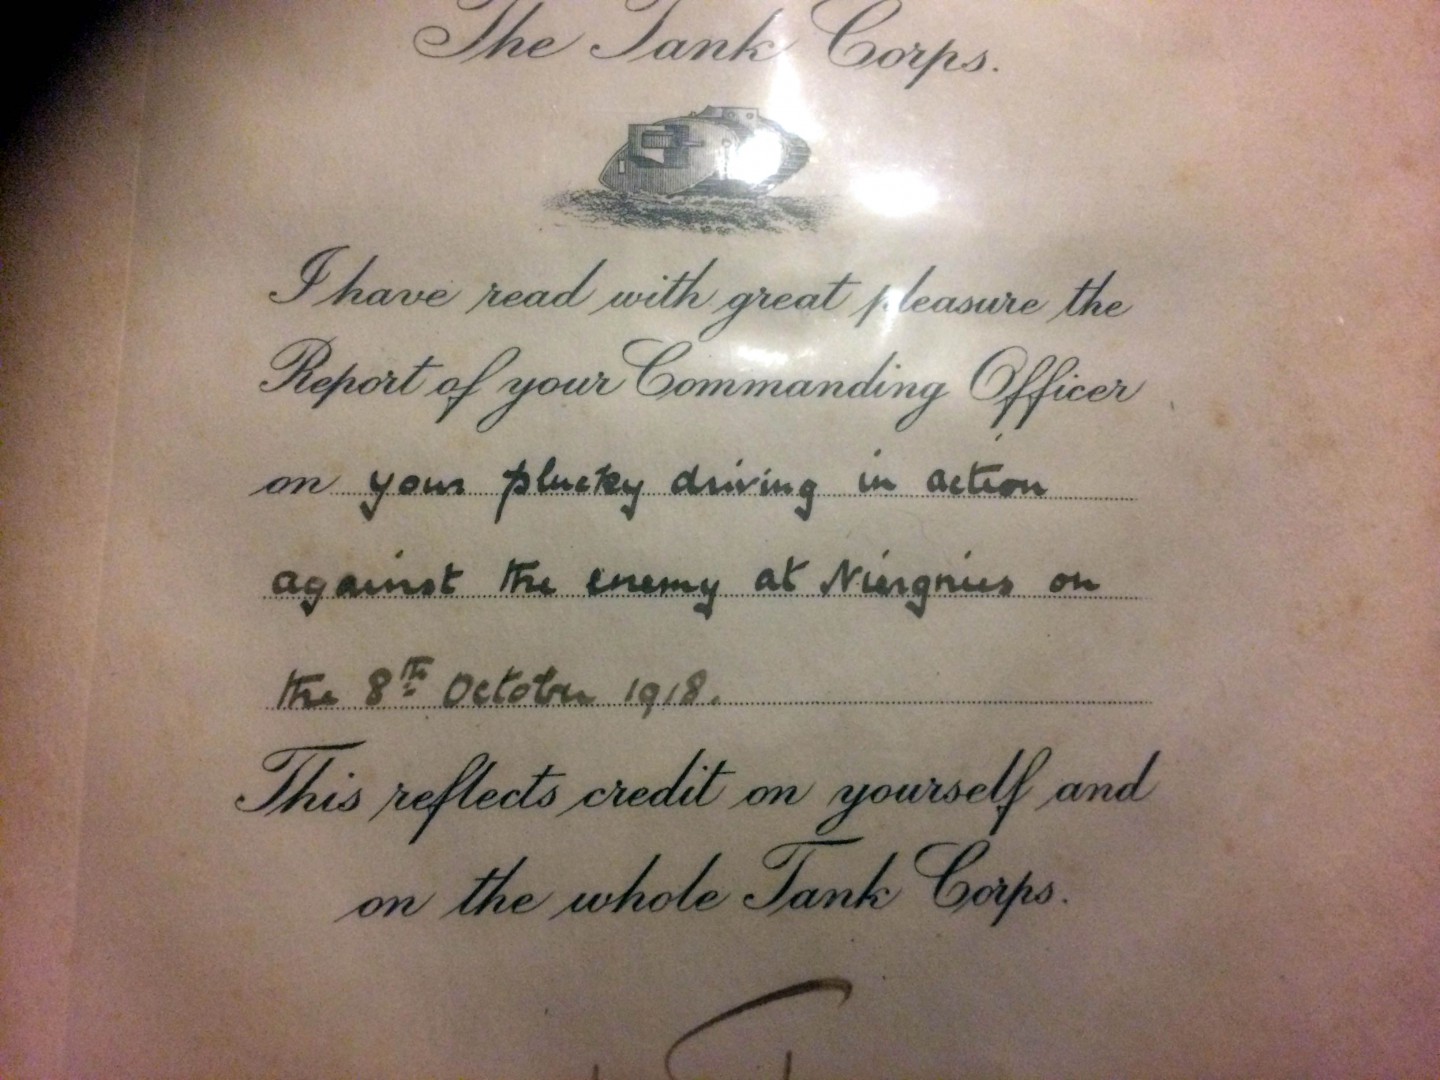 The Tank Corps.
I have read with great pleasure the
Report of your Commanding Officer
on your plucky driving in action
against the enemy at Niergnies on
the 8TH October 1918.
This reflects credit on yourself and
on the whole Tank Corps.